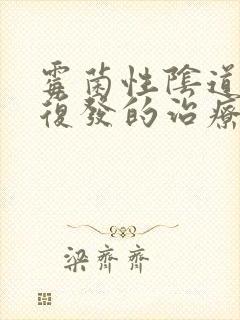 霉菌性陰道
復發的治療
梁齊齊